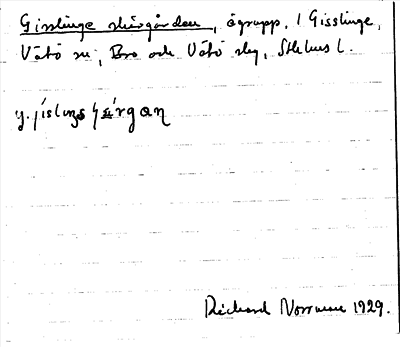 Gisslinge skärgården, ögrupp, / Gisslinge,
Vätö sn, Bro och Vätö skg, Sthlms l.
y.
Rickard Norrman 1929.